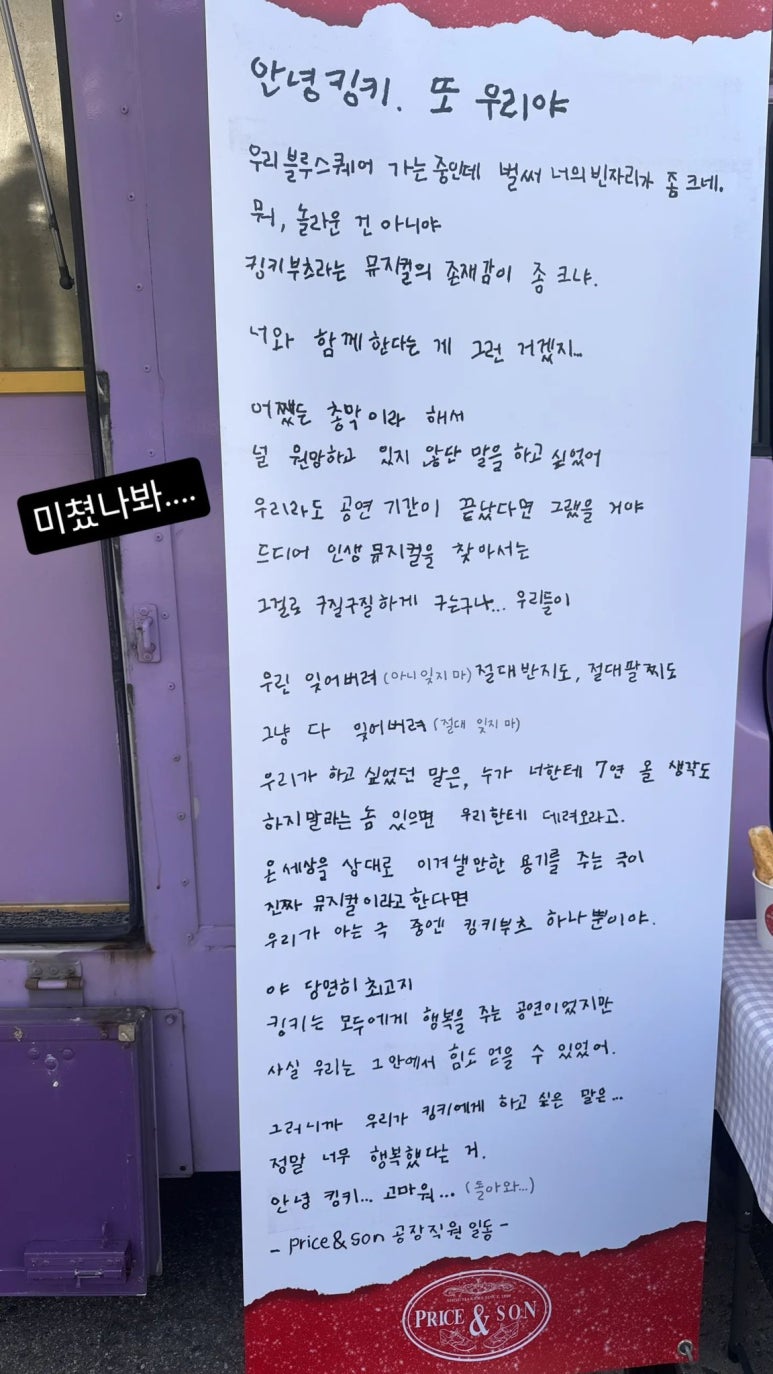 안녕킹키. 또 우리야
우리 블루스퀘어 가는 중인데 벌써 너의 빈자리가 좀 크네.
뭐, 놀라운 건 아니야
킹키부츠라는 뮤지컬의 존재감이 좀 크냐.
너와 함께한다는 게 그런 거겠지...
어쨌든 총막이라 해서
널 원망하고 있지 않단 말을 하고 싶었어
미쳤나봐....
우리라도 공연 기간이 끝났다면 그랬을 거야
드디어 인생 뮤지컬을 찾아서는
그걸로 구질구질하게 구는구나... 우리들이
우린 잊어버려 (아니 잊지 마) 절대반지도, 절대팔찌도
그냥 다 잊어버려 (절대 잊지 마)
우리가 하고 싶었던 말은, 누가 너한테 7연 올 생각도
하지말라는 놈 있으면 우리한테 데려오라고.
온 세상을 상대로 이겨낼만한 용기를 주는 극이
진짜 뮤지컬이라고 한다면
우리가 아는 극 중엔 킹키부츠 하나뿐이야.
야 당연히 최고지
킹키는 모두에게 행복을 주는 공연이었지만
사실 우리는 그안에서 힘도 얻을 수 있었어.
그러니까 우리가 킹키에게 하고 싶은 말은...
정말 너무 행복했다는 거.
안녕 킹키... 고마워... (돌아와...)
- Price & Son 공장직원 일동 -
PRICE & SON